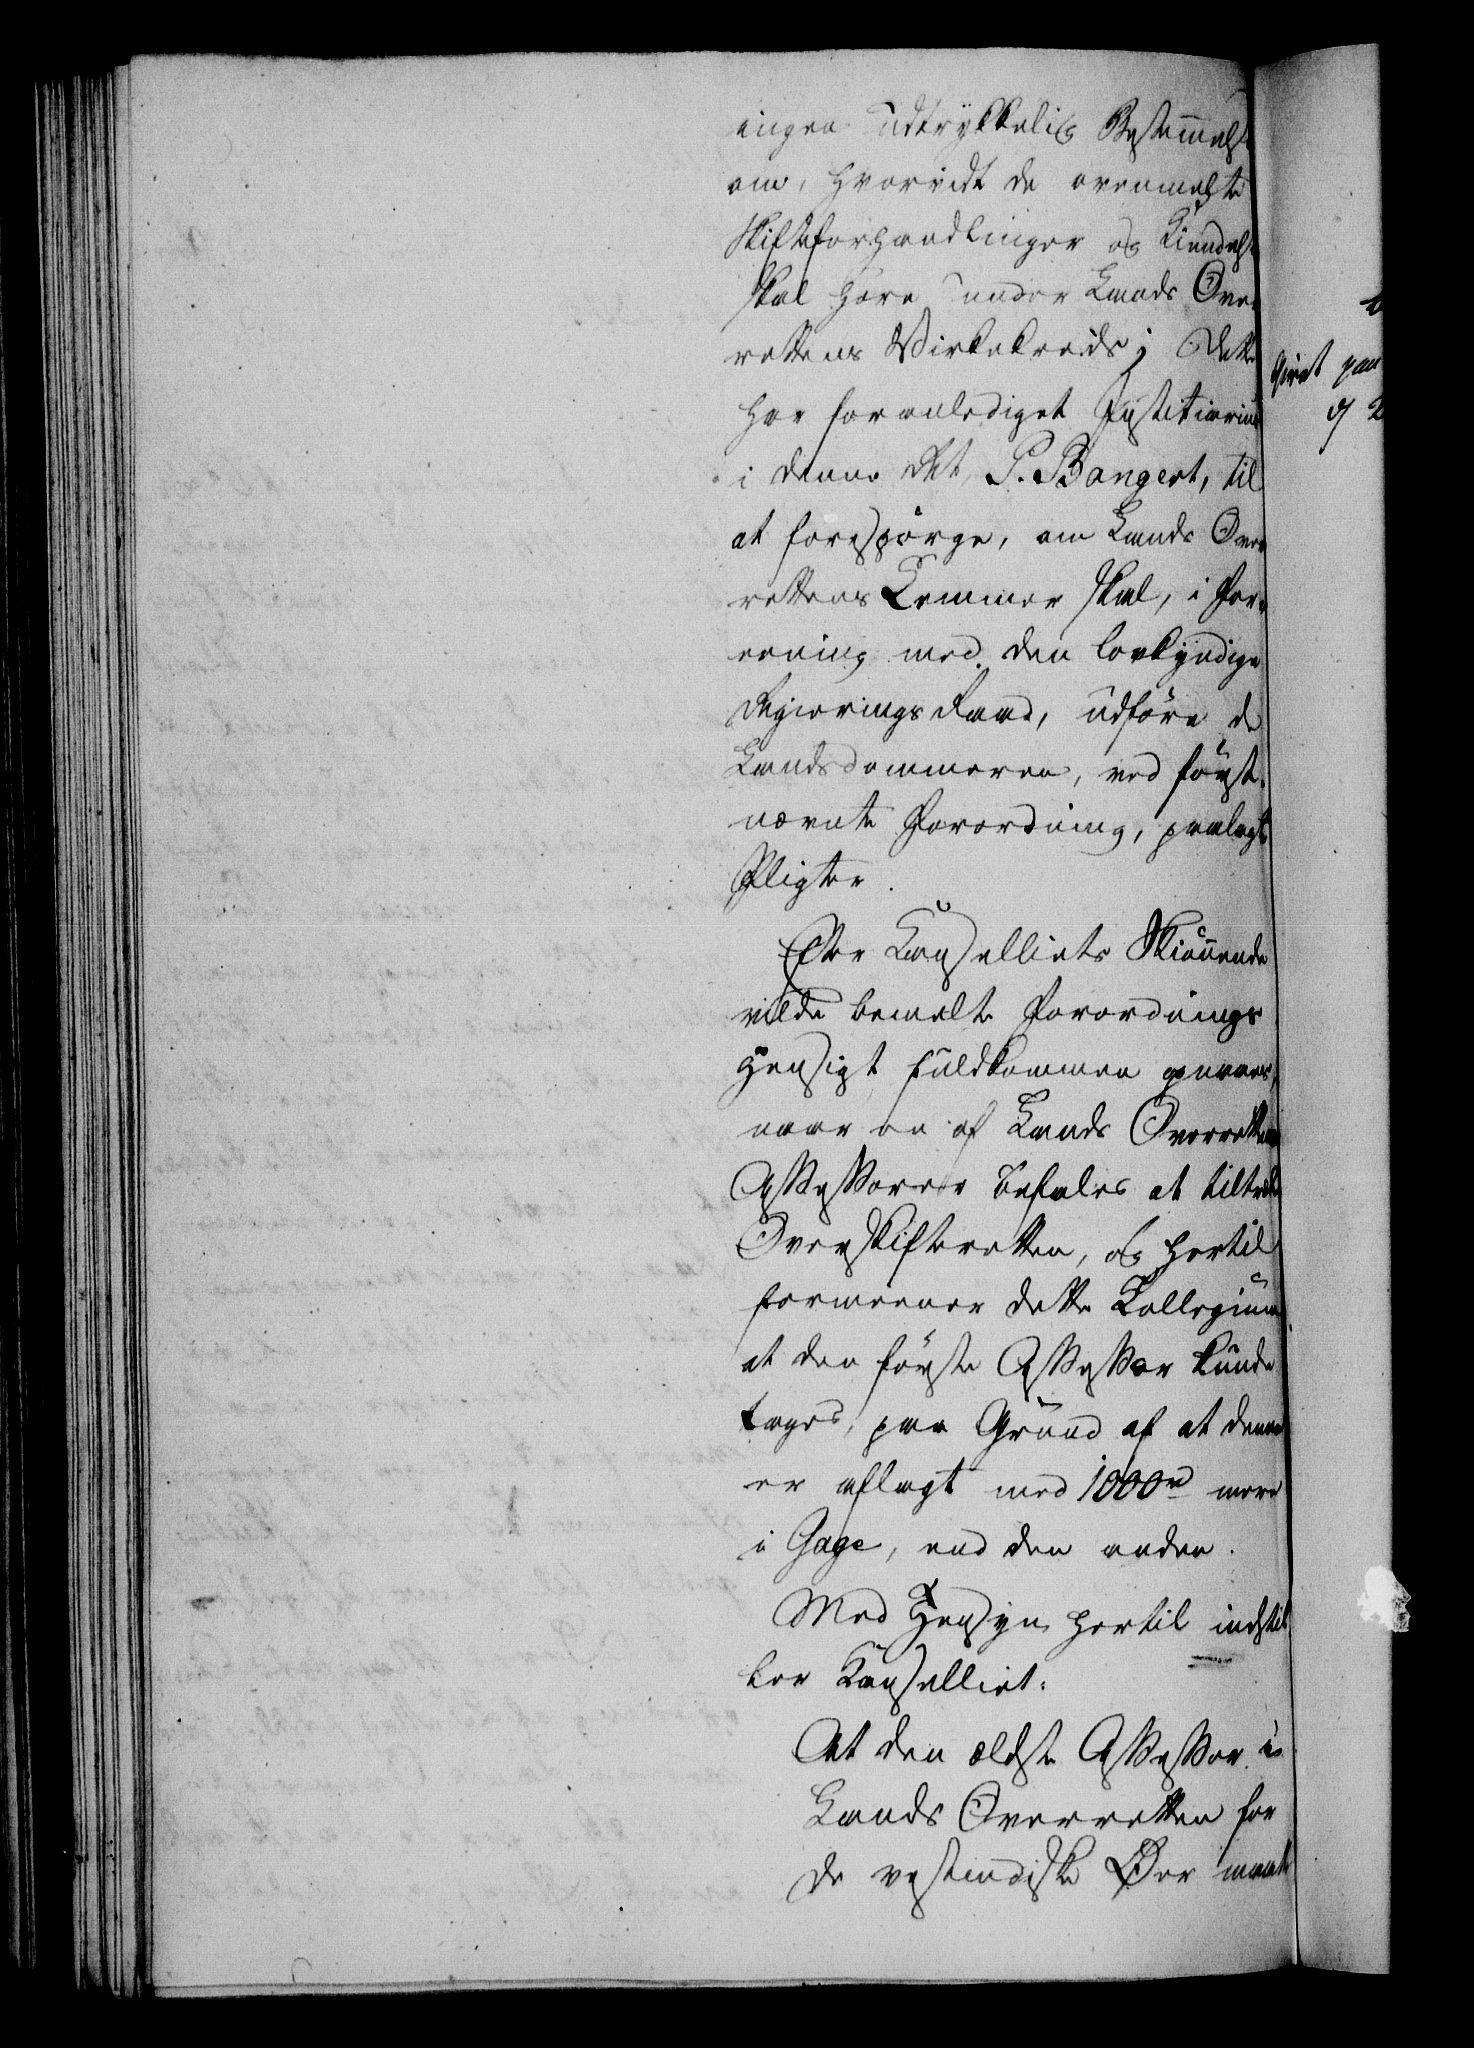 ingen udtrykkelig Bestemmelse
om, hvorvidt de ovenmeldte
Skifteforhandlinger og Kiendelse
skal høre under Lands Over
rettens Virkekreds; Dette
har foranlediget Justitiarius
i denne Ret, P. Bangert, til
at forespørge, om Lands Over
rettens Lemmer skal, i For-
eening med den lovkyndige
Regierings Raad, udføre de
Landsdommeren, ved først-
nævnte Forordning, paalagte
Pligter.
Efter Cancelliets Skiønnende
vilde bemelte Forordnings
Hensigt fuldkommen opnaaes,
naar en af Lands Overrettens
Assessorer befales at tiltræde
Overskifteretten, og hertil
formeener dette Collegium
at den første Assessor kunde
tages, paa Grund af at denne
er aflagt med 1000 rd mere
i Gage, end den anden.
Med Hensyn hertil indstil
ler Cancelliet:
At den ældste Assessor i
Lands Overretten for
de vestindiske Øer maatte